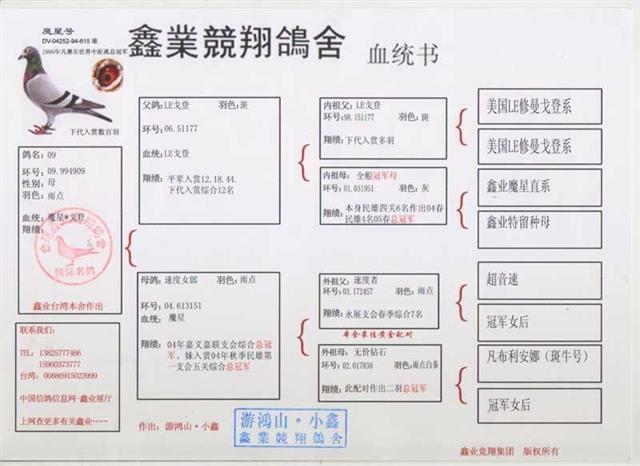 魔星号
DV-04252-94-615 雄
1999年凡赛尔世界中距离总冠军
鑫業競翔鴿舍
血统书
下代入赏数百羽
鸽名：09
环号：09.994909
性别：母
羽色：雨点
血统：魔星*戈登
翔绩：
国际名鸽
鑫业台湾本舍作出
联系我们：
TEL: 13825777466
15960373777
台湾：00886915023999
中国信鸽信息网-鑫业展厅
上网查更多有关鑫业……
父鸽：LE戈登 羽色：斑
环号：06.51177
血统：LE戈登
翔绩：平辈入赏12.18.44.
下代入赏综合12名
母鸽：速度女郎 羽色：雨点
环号：04.613151
血统：魔星
翔绩：04年嘉义嘉联支会综合总冠
军、妹入赏04年秋季民雄第
一支会五关综合总冠军
作出：游鸿山·小鑫
游鸿山·小鑫
鑫業競翔鴿舍
内祖父：LE戈登
环号：98.151177 羽色：斑
翔绩：下代入赏多羽
内祖母：全船冠军母
环号：01.031951 羽色：灰
翔绩：本身民雄四关6名作出04春
民雄4名05春总冠军
外祖父：速度者
环号：03.172457 羽色：雨点
翔绩：永展支会春季综合7名
本舍最佳黄金配对
外祖母：无价钻石
环号：02.017838 羽色：雨点白条
翔绩：此配对作出二羽总冠军
美国LE修曼戈登系
美国LE修曼戈登系
鑫业魔星直系
鑫业特留种母
超音速
冠军女后
凡布利安娜（斑牛号）
冠军女后
鑫业竞翔集团 版权所有